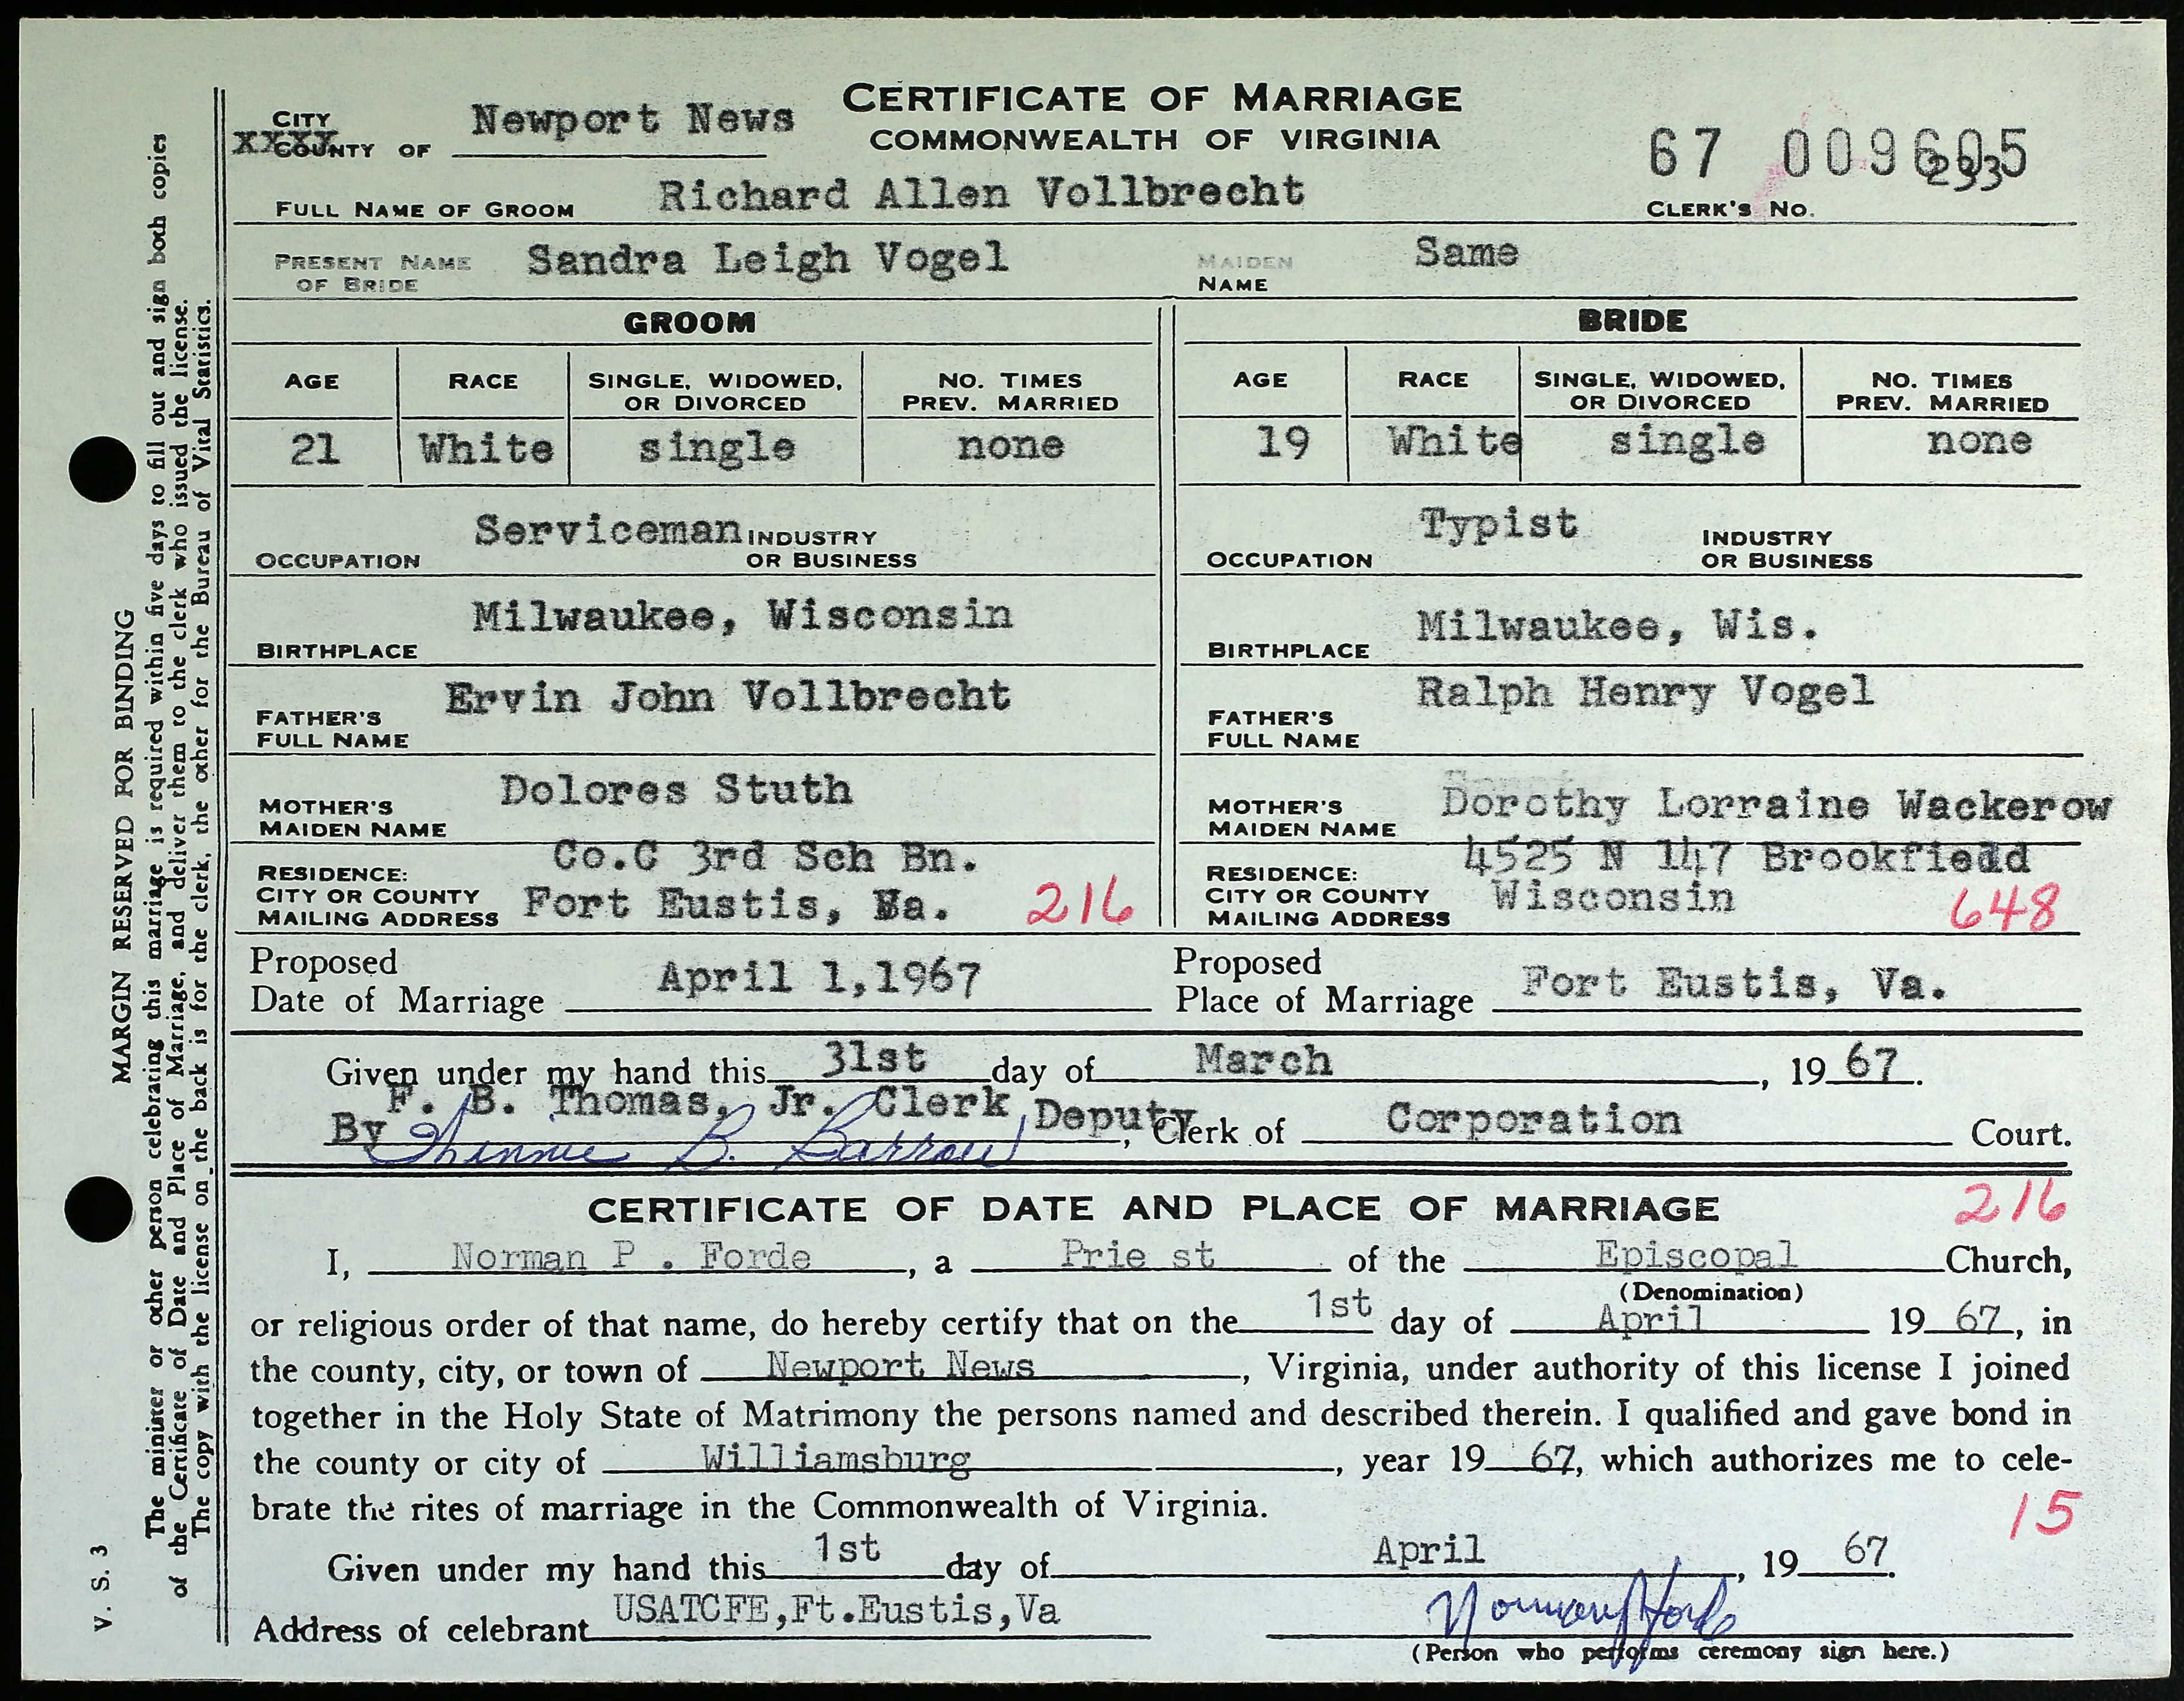 CERTIFICATE OF MARRIAGE
COMMONWEALTH OF VIRGINIA
CITY
XXXX COUNTY OF Newport News
67 009605
293
CLERK'S NO.
FULL NAME OF GROOM Richard Allen Vollbrecht
PRESENT NAME OF BRIDE Sandra Leigh Vogel MAIDEN NAME Same
GROOM BRIDE
AGE RACE SINGLE, WIDOWED, OR DIVORCED NO. TIMES PREV. MARRIED AGE RACE SINGLE, WIDOWED, OR DIVORCED NO. TIMES PREV. MARRIED
21 White single none 19 White single none
OCCUPATION Serviceman INDUSTRY OR BUSINESS OCCUPATION Typist INDUSTRY OR BUSINESS
BIRTHPLACE Milwaukee, Wisconsin BIRTHPLACE Milwaukee, Wis.
FATHER'S FULL NAME Ervin John Vollbrecht FATHER'S FULL NAME Ralph Henry Vogel
MOTHER'S MAIDEN NAME Dolores Stuth MOTHER'S MAIDEN NAME Dorothy Lorraine Wackerow
RESIDENCE: CITY OR COUNTY MAILING ADDRESS Co.C 3rd Sch Bn. Fort Eustis, Va. 216
RESIDENCE: CITY OR COUNTY MAILING ADDRESS 4525 N 147 Brookfield Wisconsin 648
Proposed Date of Marriage April 1,1967 Proposed Place of Marriage Fort Eustis, Va.
Given under my hand this 31st day of March, 1967.
F. B. Thomas, Jr. Clerk
By B. Barrow Deputy, Clerk of Corporation Court.
CERTIFICATE OF DATE AND PLACE OF MARRIAGE 216
I, Norman P . Forde, a Prie st of the Episcopal Church,
(Denomination)
or religious order of that name, do hereby certify that on the 1st day of April 1967, in
the county, city, or town of Newport News, Virginia, under authority of this license I joined
together in the Holy State of Matrimony the persons named and described therein. I qualified and gave bond in
the county or city of Williamsburg, year 1967, which authorizes me to cele-
brate the rites of marriage in the Commonwealth of Virginia.
15
Given under my hand this 1st day of April, 1967.
Address of celebrant USATCFE,Ft.Eustis,Va Norman P Forde
(Person who performs ceremony sign here.)
MARGIN RESERVED FOR BINDING
The minister or other person celebrating this marriage is required within five days to fill out and sign both copies
of the Certificate of Date and Place of Marriage, and deliver them to the clerk who issued the license.
The copy with the license on the back is for the clerk, the other for the Bureau of Vital Statistics.
V. S. 3